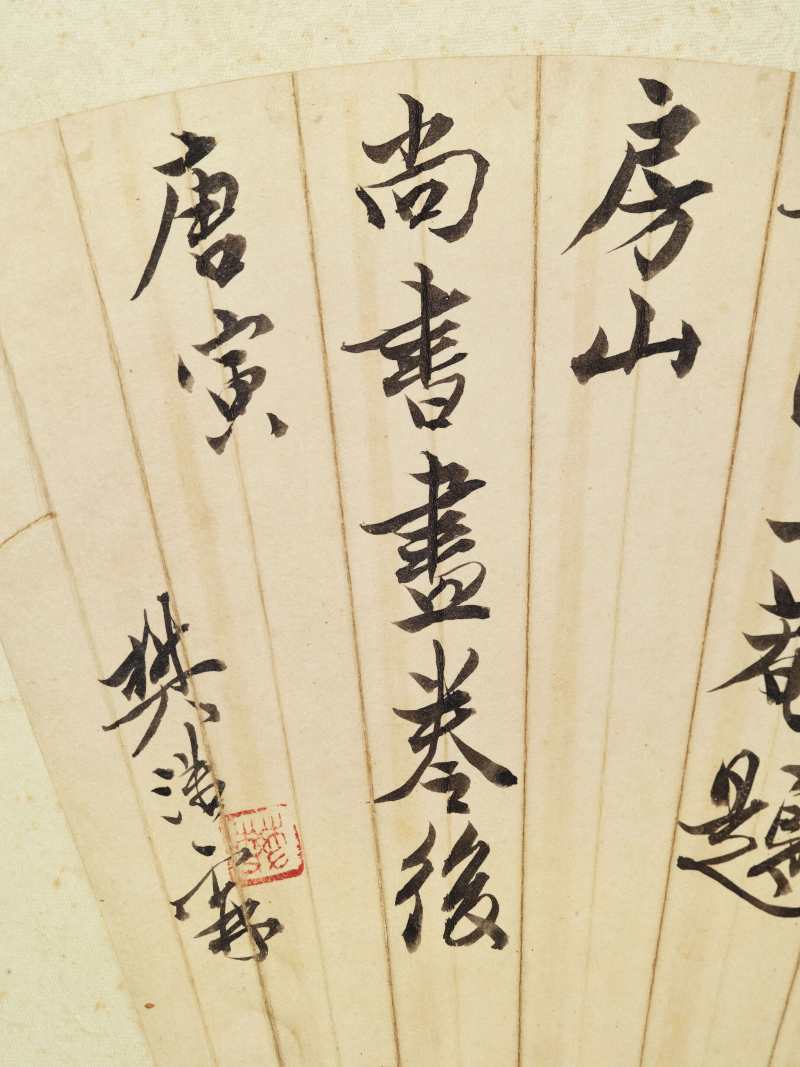 菴題
房山
尚書畫卷後
唐寅
樊浩霖